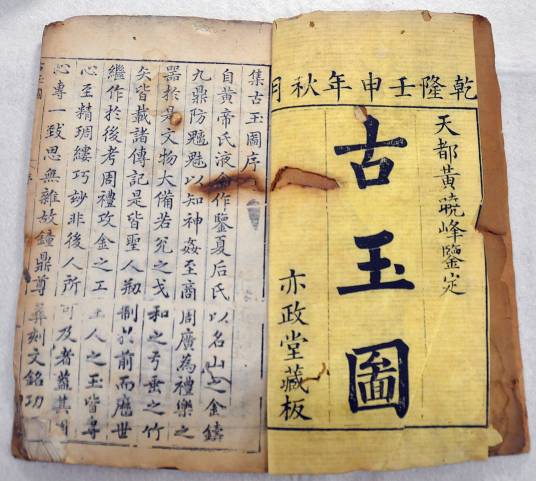 乾隆壬申年秋月
天都黃曉峰鑒定
古玉圖
亦政堂藏板
集古玉圖序
自黃帝氏液金作鑒夏后氏以名山之金鑄
九鼎防魑魅以知神姦至商周廣為禮樂之
器於是文物大備若兖之戈和之弓垂之竹
矢皆載諸傳記是皆聖人剏制於前而歷世
繼作於後考周禮攻金之工玉人之玉皆專
心至精琱縷巧玅非後人所可及者蓋其用
心專一致思無雜故鐘鼎尊彝刻文銘功